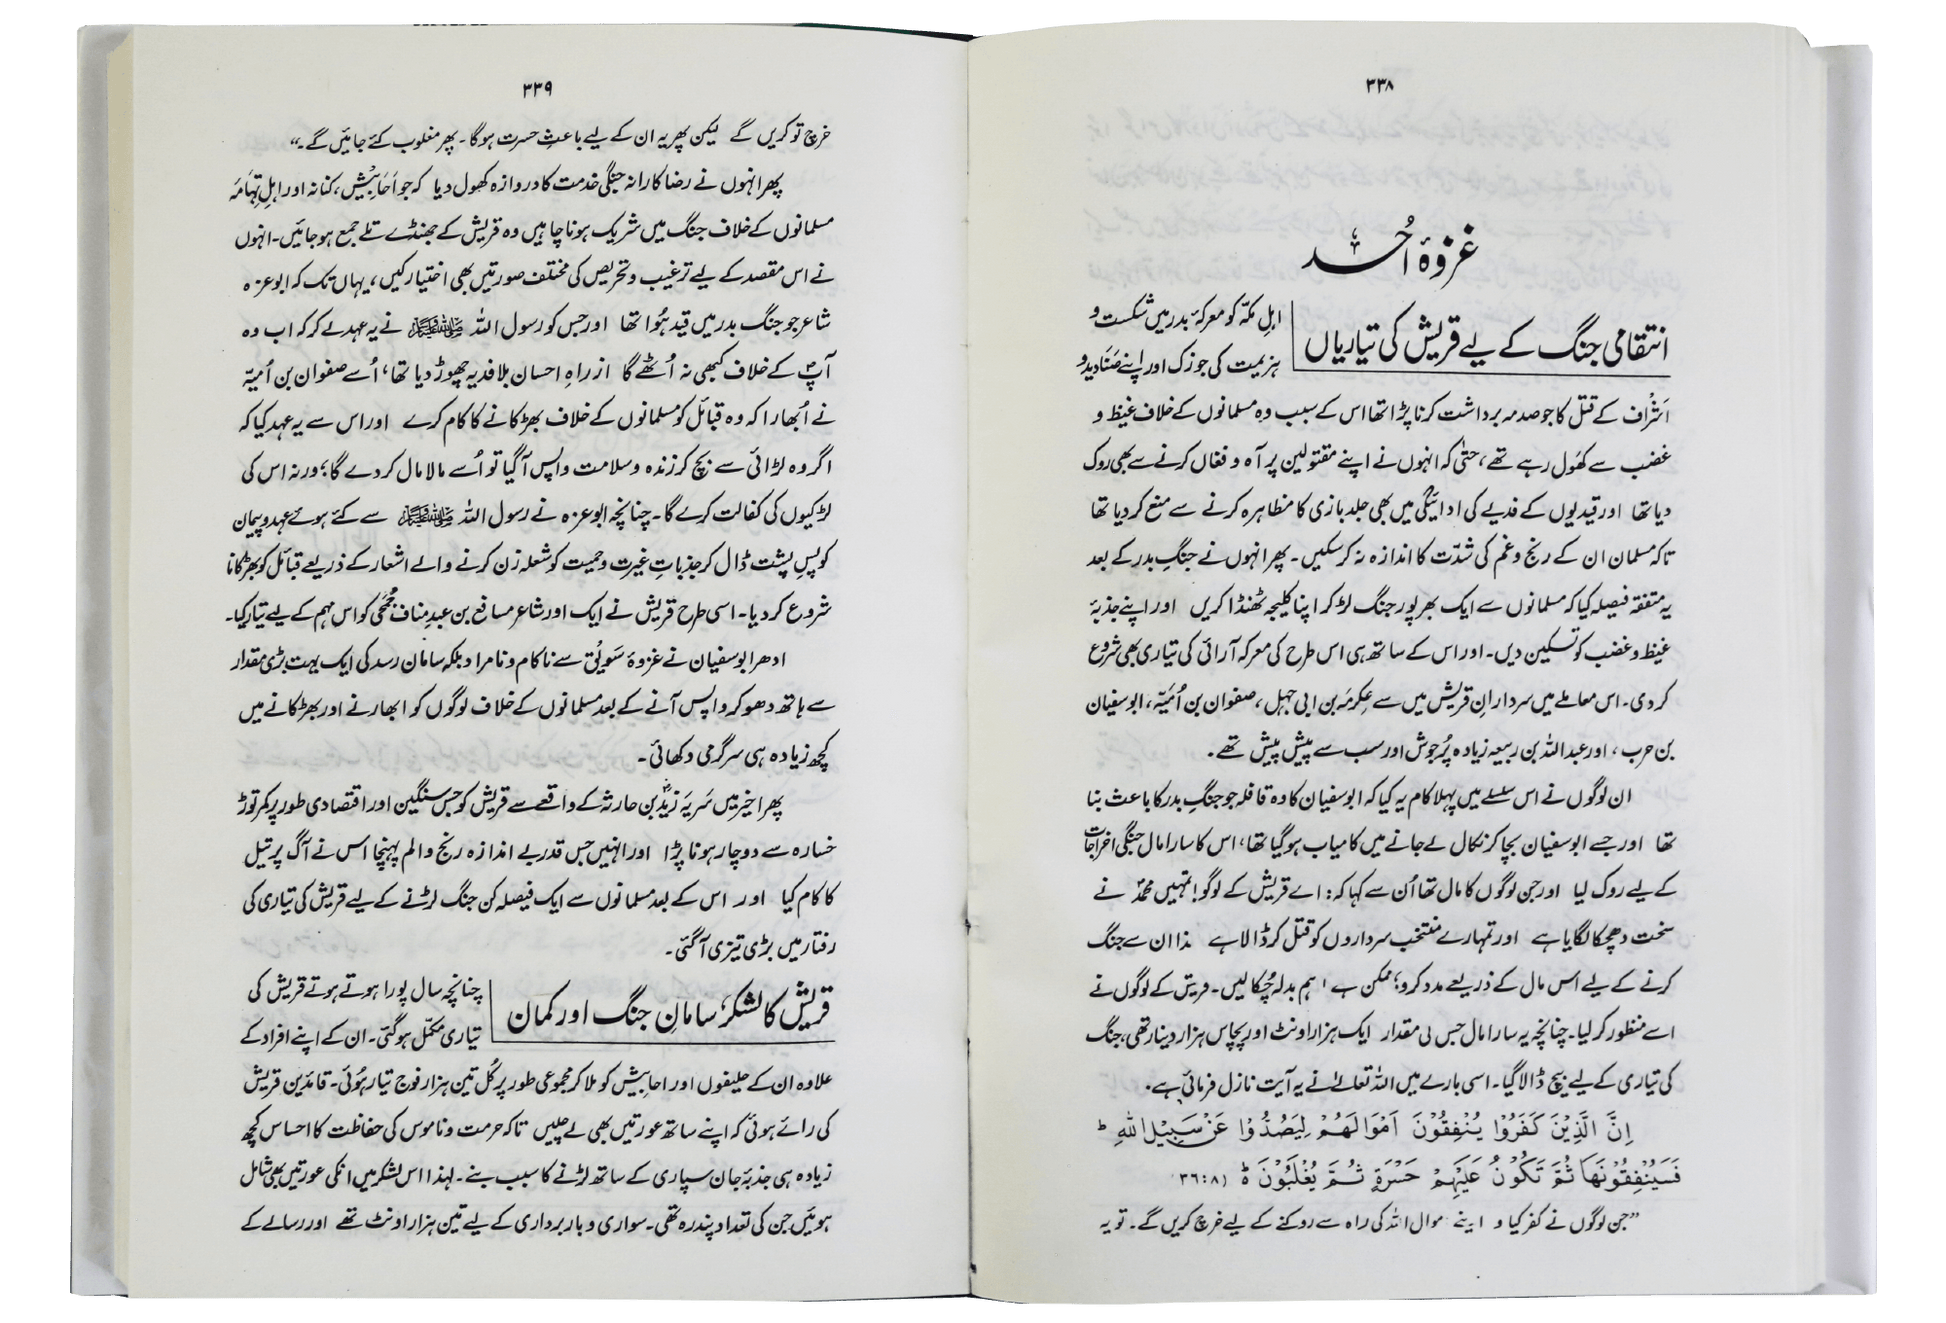 ۳۳۸
غزوۂ اُحد
انتقامی جنگ کے لیے قریش کی تیاریاں
اہلِ مکّہ کو معرکۂ بدر میں شکست و
ہزیمت کی جو زک اور اپنے صَنَادید و
اَشراف کے قتل کا جو صدمہ برداشت کرنا پڑا تھا اس کے سبب وہ مسلمانوں کے خلاف غیظ و
غضب سے کھَول رہے تھے، حتٰی کہ انہوں نے اپنے مقتولین پر آہ و فغاں کرنے سے بھی روک
دیا تھا اور قیدیوں کے فدیے کی ادائیگی میں بھی جلد بازی کا مظاہرہ کرنے سے منع کر دیا تھا
تاکہ مسلمان ان کے رنج و غم کی شدّت کا اندازہ نہ کر سکیں۔ پھر انہوں نے جنگِ بدر کے بعد
یہ متفقہ فیصلہ کیا کہ مسلمانوں سے ایک بھرپور جنگ لڑ کر اپنا کلیجہ ٹھنڈا کریں اور اپنے جذبۂ
غیظ و غضب کو تسکین دیں۔ اور اس کے ساتھ ہی اس طرح کی معرکہ آرائی کی تیاری بھی شروع
کر دی۔ اس معاملے میں سردارانِ قریش میں سے عِکرمَہ بن ابی جہل، صفوان بن اُمَیّہ، ابوسفیان
بن حرب، اور عبداللہ بن ربیعہ زیادہ پُرجوش اور سب سے پیش پیش تھے۔
ان لوگوں نے اس سلسلے میں پہلا کام یہ کیا کہ ابوسفیان کا وہ قافلہ جو جنگِ بدر کا باعث بنا
تھا اور جسے ابوسفیان بچا کر نکال لے جانے میں کامیاب ہو گیا تھا، اس کا سارا مال جنگی اخراجات
کے لیے روک لیا اور جن لوگوں کا مال تھا اُن سے کہا کہ: اے قریش کے لوگو! تمہیں محمدؐ نے
سخت دھچکا لگایا ہے اور تمہارے منتخب سرداروں کو قتل کر ڈالا ہے ہذا ان سے جنگ
کرنے کے لیے اس مال کے ذریعے مدد کرو؛ ممکن ہے ہم بدلہ چُکا لیں۔ قریش کے لوگوں نے
اسے منظور کر لیا۔ چنانچہ یہ سارا مال جس کی مقدار ایک ہزار اونٹ اور پچاس ہزار دینار تھی، جنگ
کی تیاری کے لیے بیچ ڈالا گیا۔ اسی بارے میں اللہ تعالےٰ نے یہ آیت نازل فرمائی ہے۔
اِنَّ الَّذِیْنَ کَفَرُوْا یُنْفِقُوْنَ اَمْوَالَھُمْ لِیَصُدُّوْا عَنْ سَبِیْلِ اللّٰہِ ؕ
فَسَیُنْفِقُوْنَھَا ثُمَّ تَکُوْنُ عَلَیْھِمْ حَسْرَۃً ثُمَّ یُغْلَبُوْنَ ؕ (۸:۳۶
”جن لوگوں نے کفر کیا و اپنے موال اللہ کی راہ سے روکنے کے لیے خرچ کریں گے۔ تو یہ
۳۳۹
خرچ تو کریں گے لیکن پھر یہ ان کے لیے باعثِ حسرت ہوگا۔ پھر مغلوب کئے جائیں گے۔“
پھر انہوں نے رضاکارانہ جنگی خدمت کا دروازہ کھول دیا کہ جو اَحَابِیْش، کنانہ اور اہلِ تِہَامَہ
مسلمانوں کے خلاف جنگ میں شریک ہونا چاہیں وہ قریش کے جھنڈے تلے جمع ہو جائیں۔ انہوں
نے اس مقصد کے لیے ترغیب و تحریص کی مختلف صورتیں بھی اختیار کیں، یہاں تک کہ ابوعزہ
شاعر جو جنگ بدر میں قید ہُوا تھا اور جس کو رسول اللہ ﷺ نے یہ عہد لے کر کہ اب وہ
آپؐ کے خلاف کبھی نہ اُٹھے گا ازراہِ احسان بلافدیہ چھوڑ دیا تھا، اُسے صفوان بن اُمیّہ
نے اُبھارا کہ وہ قبائل کو مسلمانوں کے خلاف بھڑکانے کا کام کرے اور اس سے یہ عہد کیا کہ
اگر وہ لڑائی سے بچ کر زندہ و سلامت واپس آ گیا تو اُسے مالا مال کر دے گا؛ ورنہ اس کی
لڑکیوں کی کفالت کرے گا۔ چنانچہ ابوعزہ نے رسول اللہ ﷺ سے کئے ہوئے عہد و پیمان
کو پسِ پشت ڈال کر جذباتِ غیرت و حمیت کو شعلہ زن کرنے والے اشعار کے ذریعے قبائل کو بھڑکانا
شروع کر دیا۔ اسی طرح قریش نے ایک اور شاعر مسافع بن عبد مناف جُمَحی کو اس مہم کے لیے تیار کیا۔
ادھر ابوسفیان نے غزوۂ سَوِیْق سے ناکام و نامراد بلکہ سامان رسد کی ایک بہت بڑی مقدار
سے ہاتھ دھو کر واپس آنے کے بعد مسلمانوں کے خلاف لوگوں کو ابھارنے اور بھڑکانے میں
کچھ زیادہ ہی سرگرمی دکھائی۔
پھر اخیر میں سَریَہ زَیدؓ بن حارثہ کے واقعے سے قریش کو جس سنگین اور اقتصادی طور پر کمر توڑ
خسارہ سے دوچار ہونا پڑا اور انہیں جس قدر بے اندازہ رنج و الم پہنچا اس نے آگ پر تیل
کا کام کیا اور اس کے بعد مسلمانوں سے ایک فیصلہ کن جنگ لڑنے کے لیے قریش کی تیاری کی
رفتار میں بڑی تیزی آ گئی۔
قریش کا لشکر، سامانِ جنگ اور کمان
چنانچہ سال پورا ہوتے ہوتے قریش کی
تیاری مکمّل ہو گئی۔ ان کے اپنے افراد کے
علاوہ ان کے حلیفوں اور احابیش کو ملا کر مجموعی طور پر کُل تین ہزار فوج تیار ہُوئی۔ قائدین قریش
کی رائے ہوئی کہ اپنے ساتھ عورتیں بھی لے چلیں تاکہ حرمت و ناموس کی حفاظت کا احساس کچھ
زیادہ ہی جذبۂ جان سپاری کے ساتھ لڑنے کا سبب بنے۔ لہٰذا اس لشکر میں انکی عورتیں بھی شامل
ہوئیں جن کی تعداد پندرہ تھی۔ سواری و باربرداری کے لیے تین ہزار اونٹ تھے اور رسالے کے